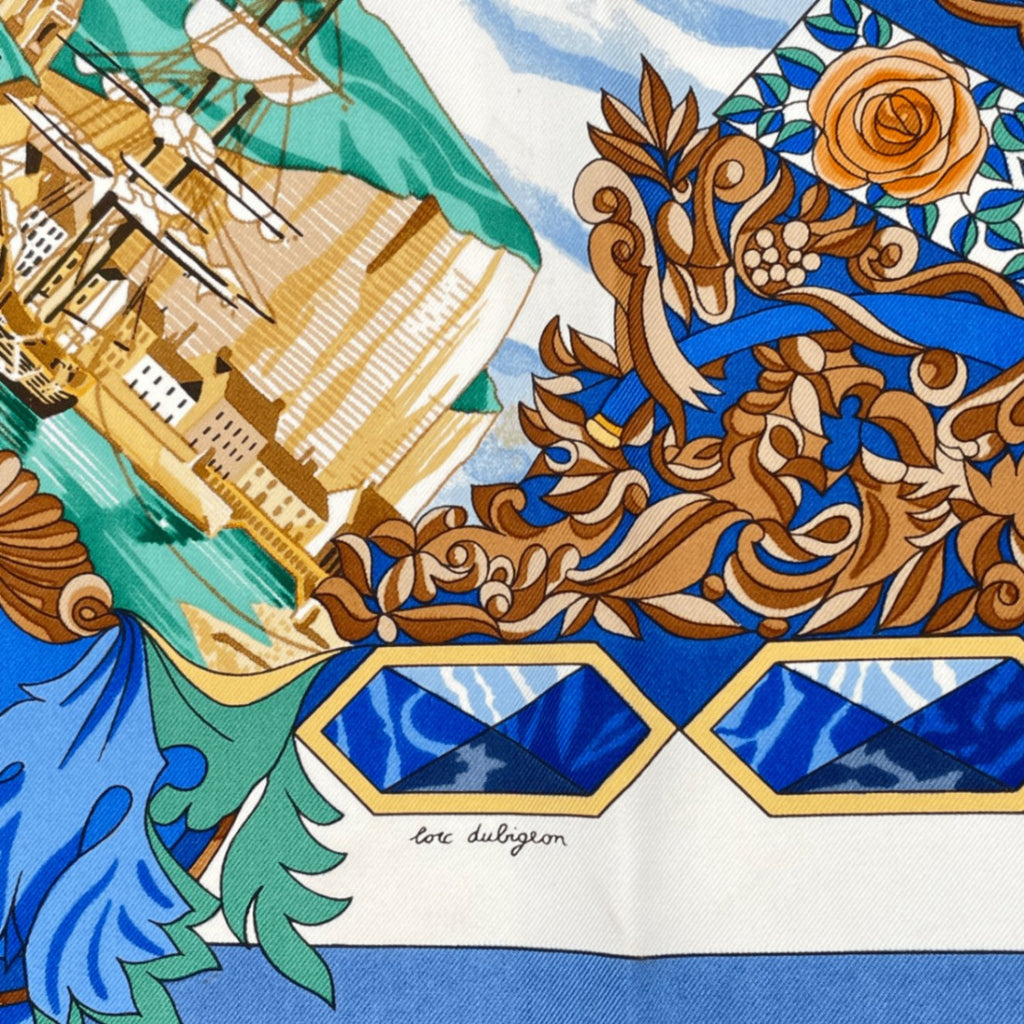 loïc dubigeon